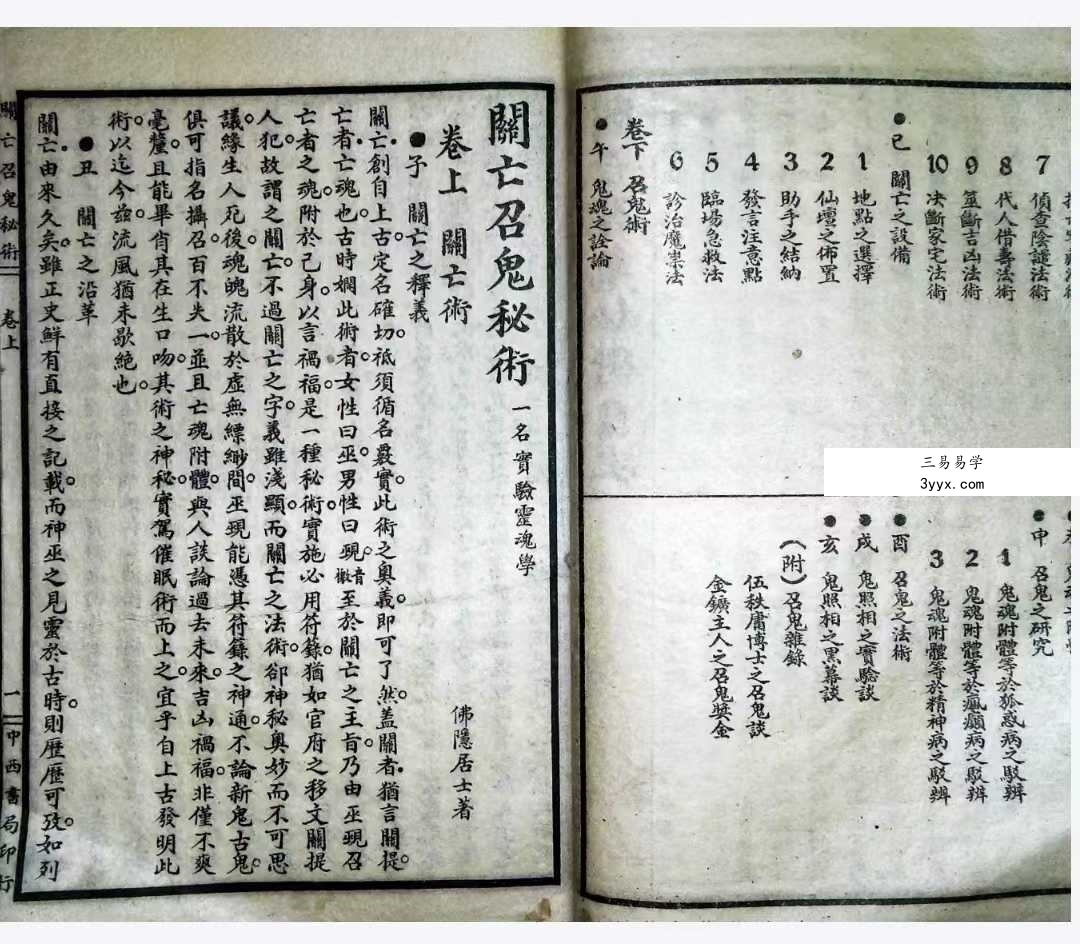 7 偵查陰譴法術
8 代人借壽法術
9 筮斷吉凶法術
10 決斷家宅法術
●巳 關亡之設備
1 地點之選擇
2 仙壇之佈置
3 助手之結納
4 發言注意點
5 臨場急救法
6 診治魔祟法
卷下 召鬼術
●午 鬼魂之詮論
●申 召鬼之研究
1 鬼魂附體等於狐惑病之駁辨
2 鬼魂附體等於瘋癲病之駁辨
3 鬼魂附體等於精神病之駁辨
●酉 召鬼之法術
●戌 鬼照相之實驗談
●亥 鬼照相之黑幕談
(附)召鬼雜錄
伍秩庸博士之召鬼談
金鑛主人之召鬼獎金
三易易学
3yyx.com
關亡召鬼秘術 一名實驗靈魂學
佛隱居士著
卷上 關亡術
●子 關亡之釋義
關亡創自上古。定名確切。祇須循名覈實。此術之奧義。即可了然。蓋關者。猶言關提。
亡者。亡魂也。古時嫻此術者。女性曰巫。男性曰覡。音檄 至於關亡之主旨。乃由巫覡召
亡者之魂。附於己身。以言禍福。是一種秘術。實施必用符籙。猶如官府之移文關提
人犯。故謂之關亡。不過關亡之字義雖淺顯。而關亡之法術。卻神秘奧妙而不可思
議。緣生人死後。魂魄流散於虛無縹緲間。巫覡能憑其符籙之神通。不論新鬼古鬼。
俱可指名攝召。百不失一。並且亡魂附體。與人談論過去未來。吉凶禍福。非僅不爽
毫釐。且能畢肖其在生口吻。其術之神秘。實駕催眠術而上之。宜乎自上古發明此
術。以迄今茲。流風猶未歇絕也。
●丑 關亡之沿革
關亡由來久矣。雖正史鮮有直接之記載。而神巫之見靈於古時。則歷歷可攷。如列
關亡召鬼秘術 卷上 一 中西書局印行